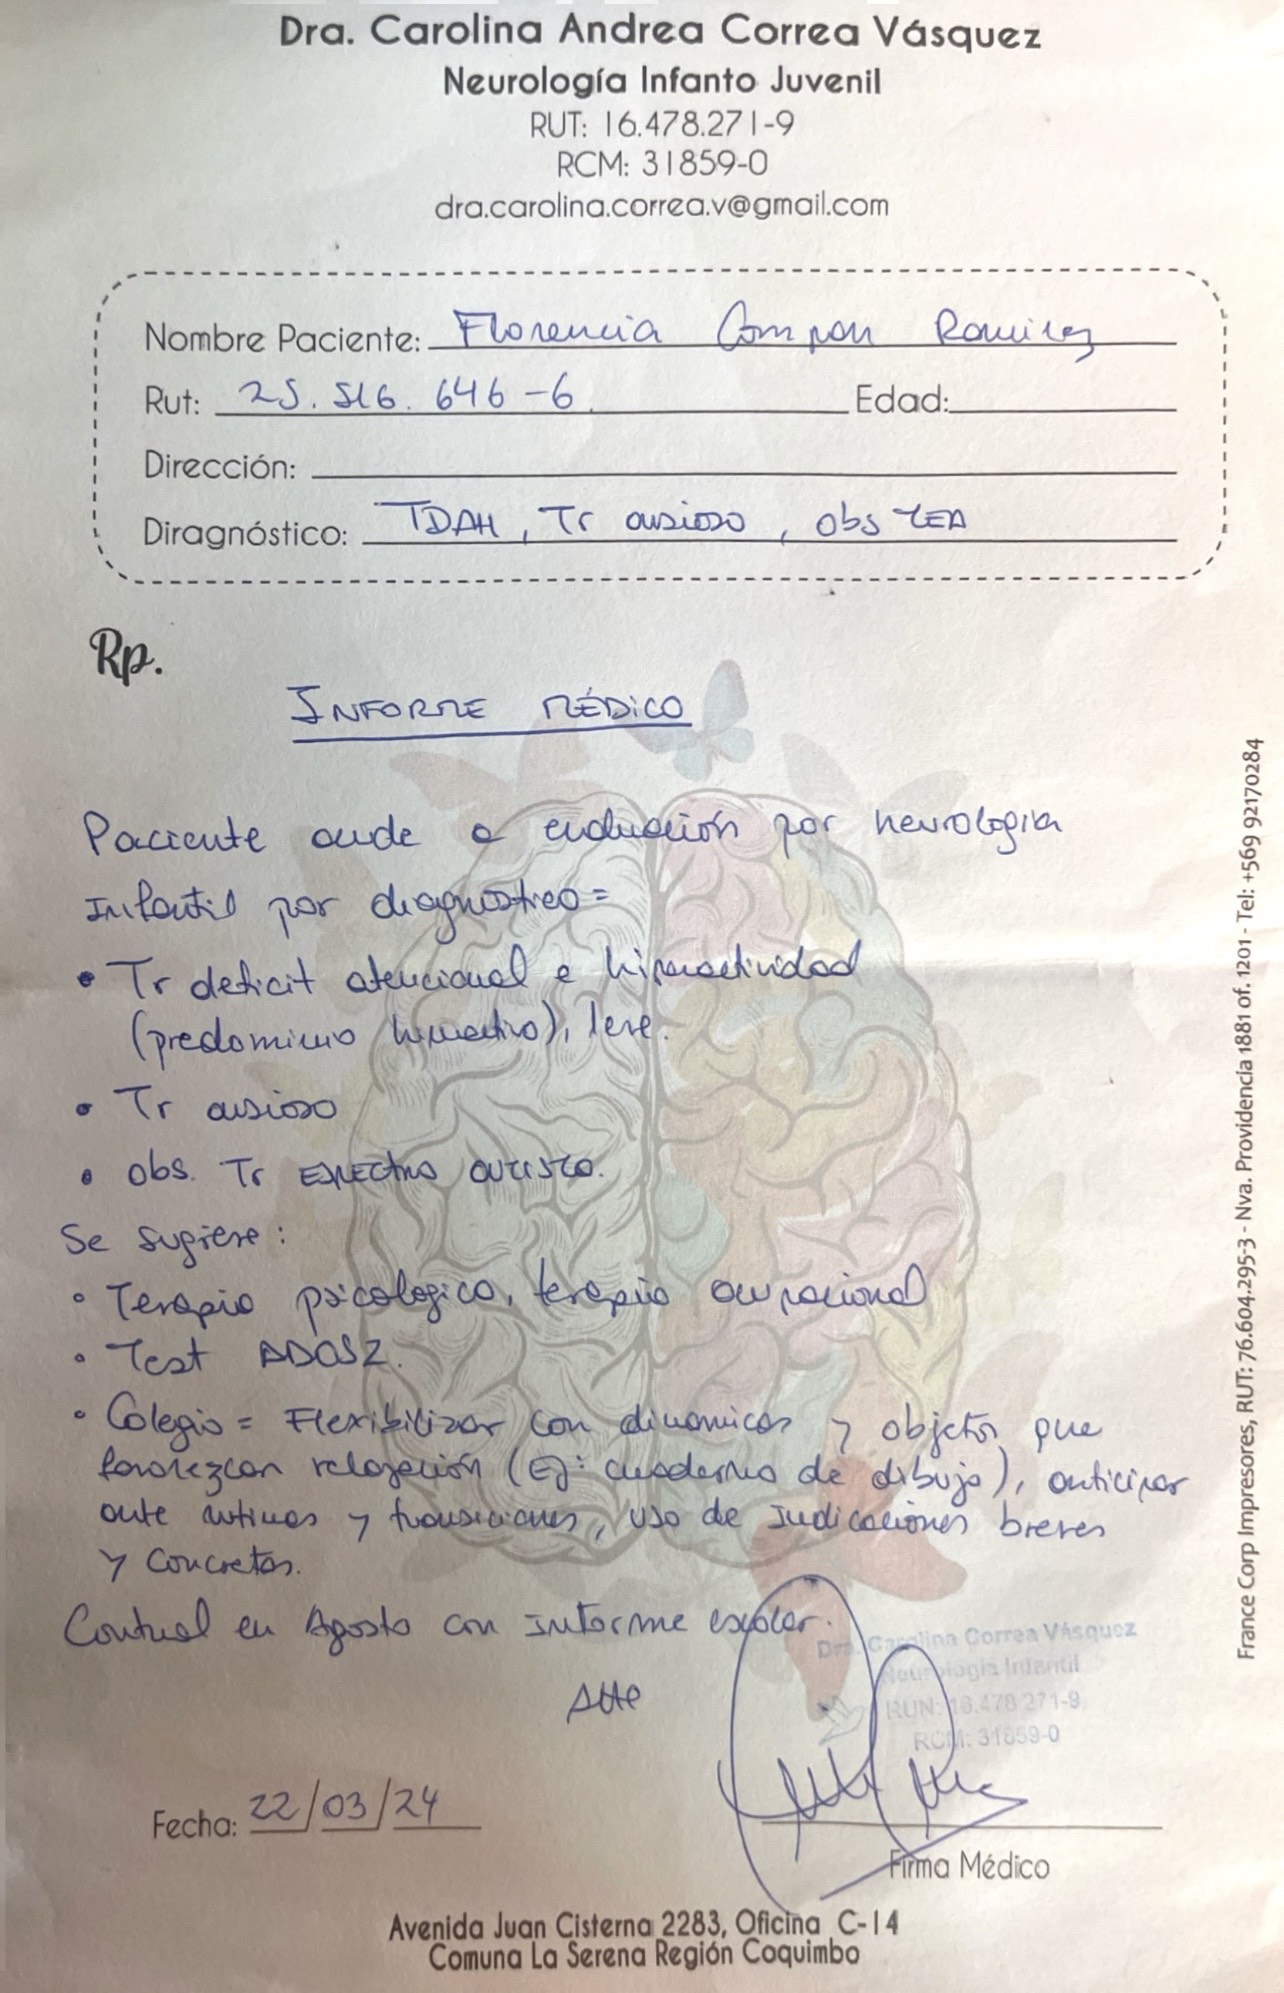 Dra. Carolina Andrea Correa Vásquez
Neurología Infanto Juvenil
RUT: 16.478.271-9
RCM: 31859-0
dra.carolina.correa.v@gmail.com
Nombre Paciente: Florencia Ramirez
Rut: 646-6 Edad:
Dirección:
Diragnóstico: TDAH, Tr ansioso, obs TEA
Rp.
INFORME MÉDICO
Paciente acude a evaluación por neurologia
Infantil por diagnostico=
• Tr deficit atencional e hiperactividad
(predominio), leve.
• Tr ansioso
• obs. Tr Espectro autista.
Se sugiere:
• Terapia psicologica, terapia ocupacional
• Test ADOS2.
• Colegio = Flexibilizar con dinamicas y objetos que
favorezcan relajación (Ej: cuaderno de dibujo), anticipar
ante rutinas y transiciones, uso de Indicaciones breves
y concretas.
Control en Agosto con Informe escolar.
Atte
Dra. Carolina Correa Vásquez
Neurologia Infantil
RUN: 16.478.271-9
RCM: 31859-0
Fecha: 22/03/24
Firma Médico
Avenida Juan Cisterna 2283, Oficina C-14
Comuna La Serena Región Coquimbo
France Corp Impresores, RUT: 76.604.295-3 - Nva. Providencia 1881 of. 1201 - Tel: +569 92170284